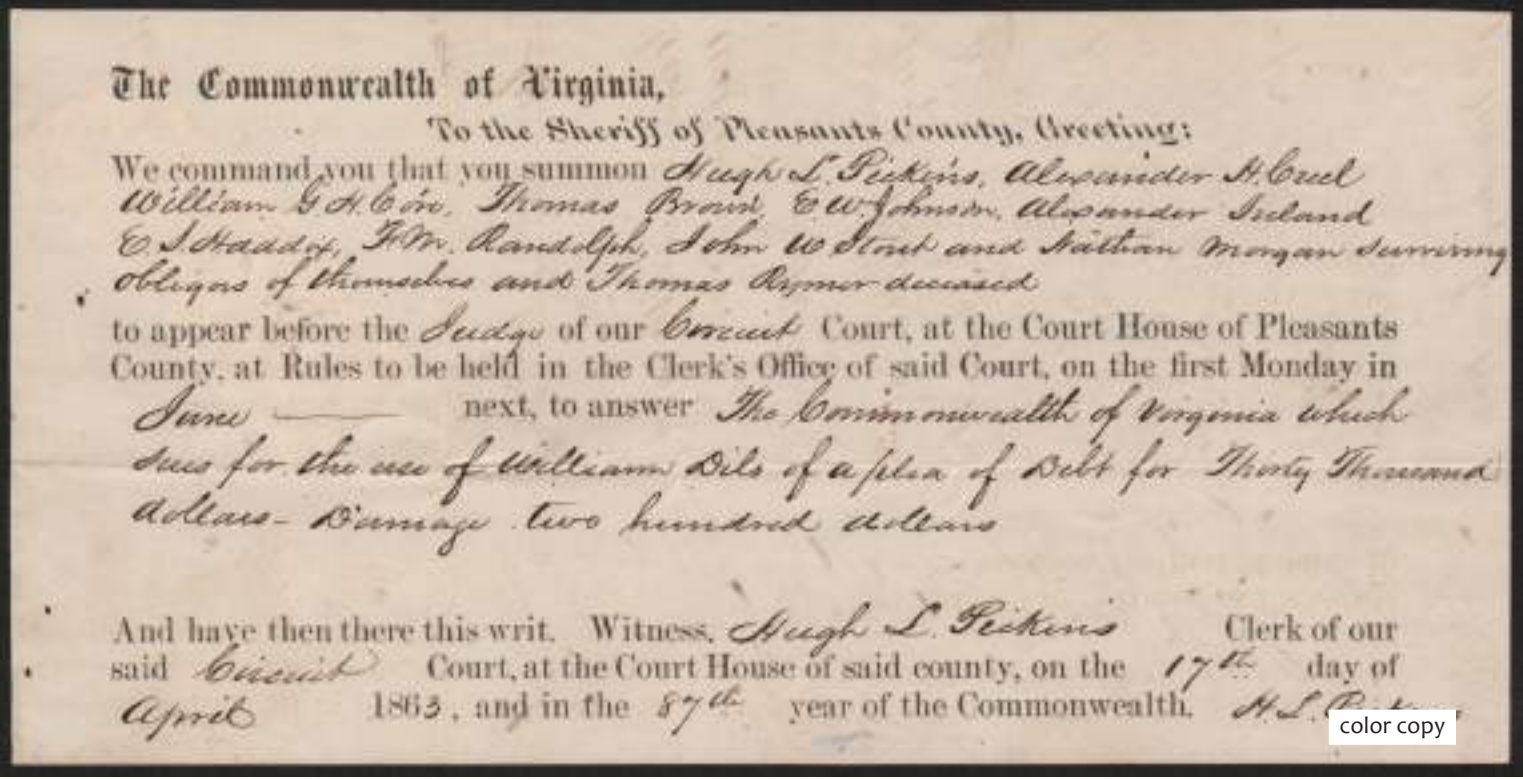 The Commonwealth of Virginia,
To the Sheriff of Pleasants County, Greeting:
We command you that you summon Hugh L. Pickins, Alexander H. Creel
William G. H. Core, Thomas Brown, E W. Johnson, Alexander Ireland
E. I. Haddox, F. M. Randolph, John W Stout and Nathan Morgan surviving
obligors of themselves and Thomas Rymer deceased
to appear before the Judge of our Circuit Court, at the Court House of Pleasants
County, at Rules to be held in the Clerk's Office of said Court, on the first Monday in
June next, to answer The Commonwealth of Virginia which
sues for the use of William Dils of a plea of Debt for Thirty Thousand
dollars - Damage two hundred dollars
And have then there this writ. Witness, Hugh L. Pickins Clerk of our
said Circuit Court, at the Court House of said county, on the 17th day of
April 1863, and in the 87th year of the Commonwealth. H. L.
color copy